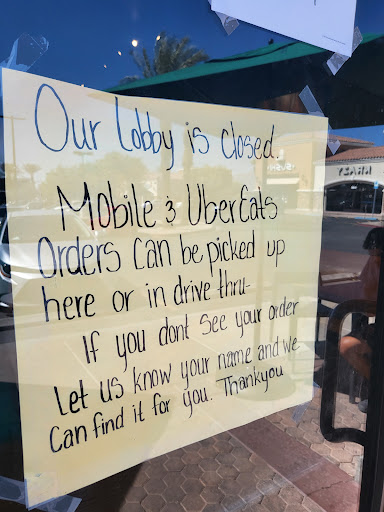 Our Lobby is closed.
Mobile & Uber Eats
Orders Can be picked up
here or in drive thru-
If you dont see your order
Let us know your name and we
Can find it for you. Thankyou